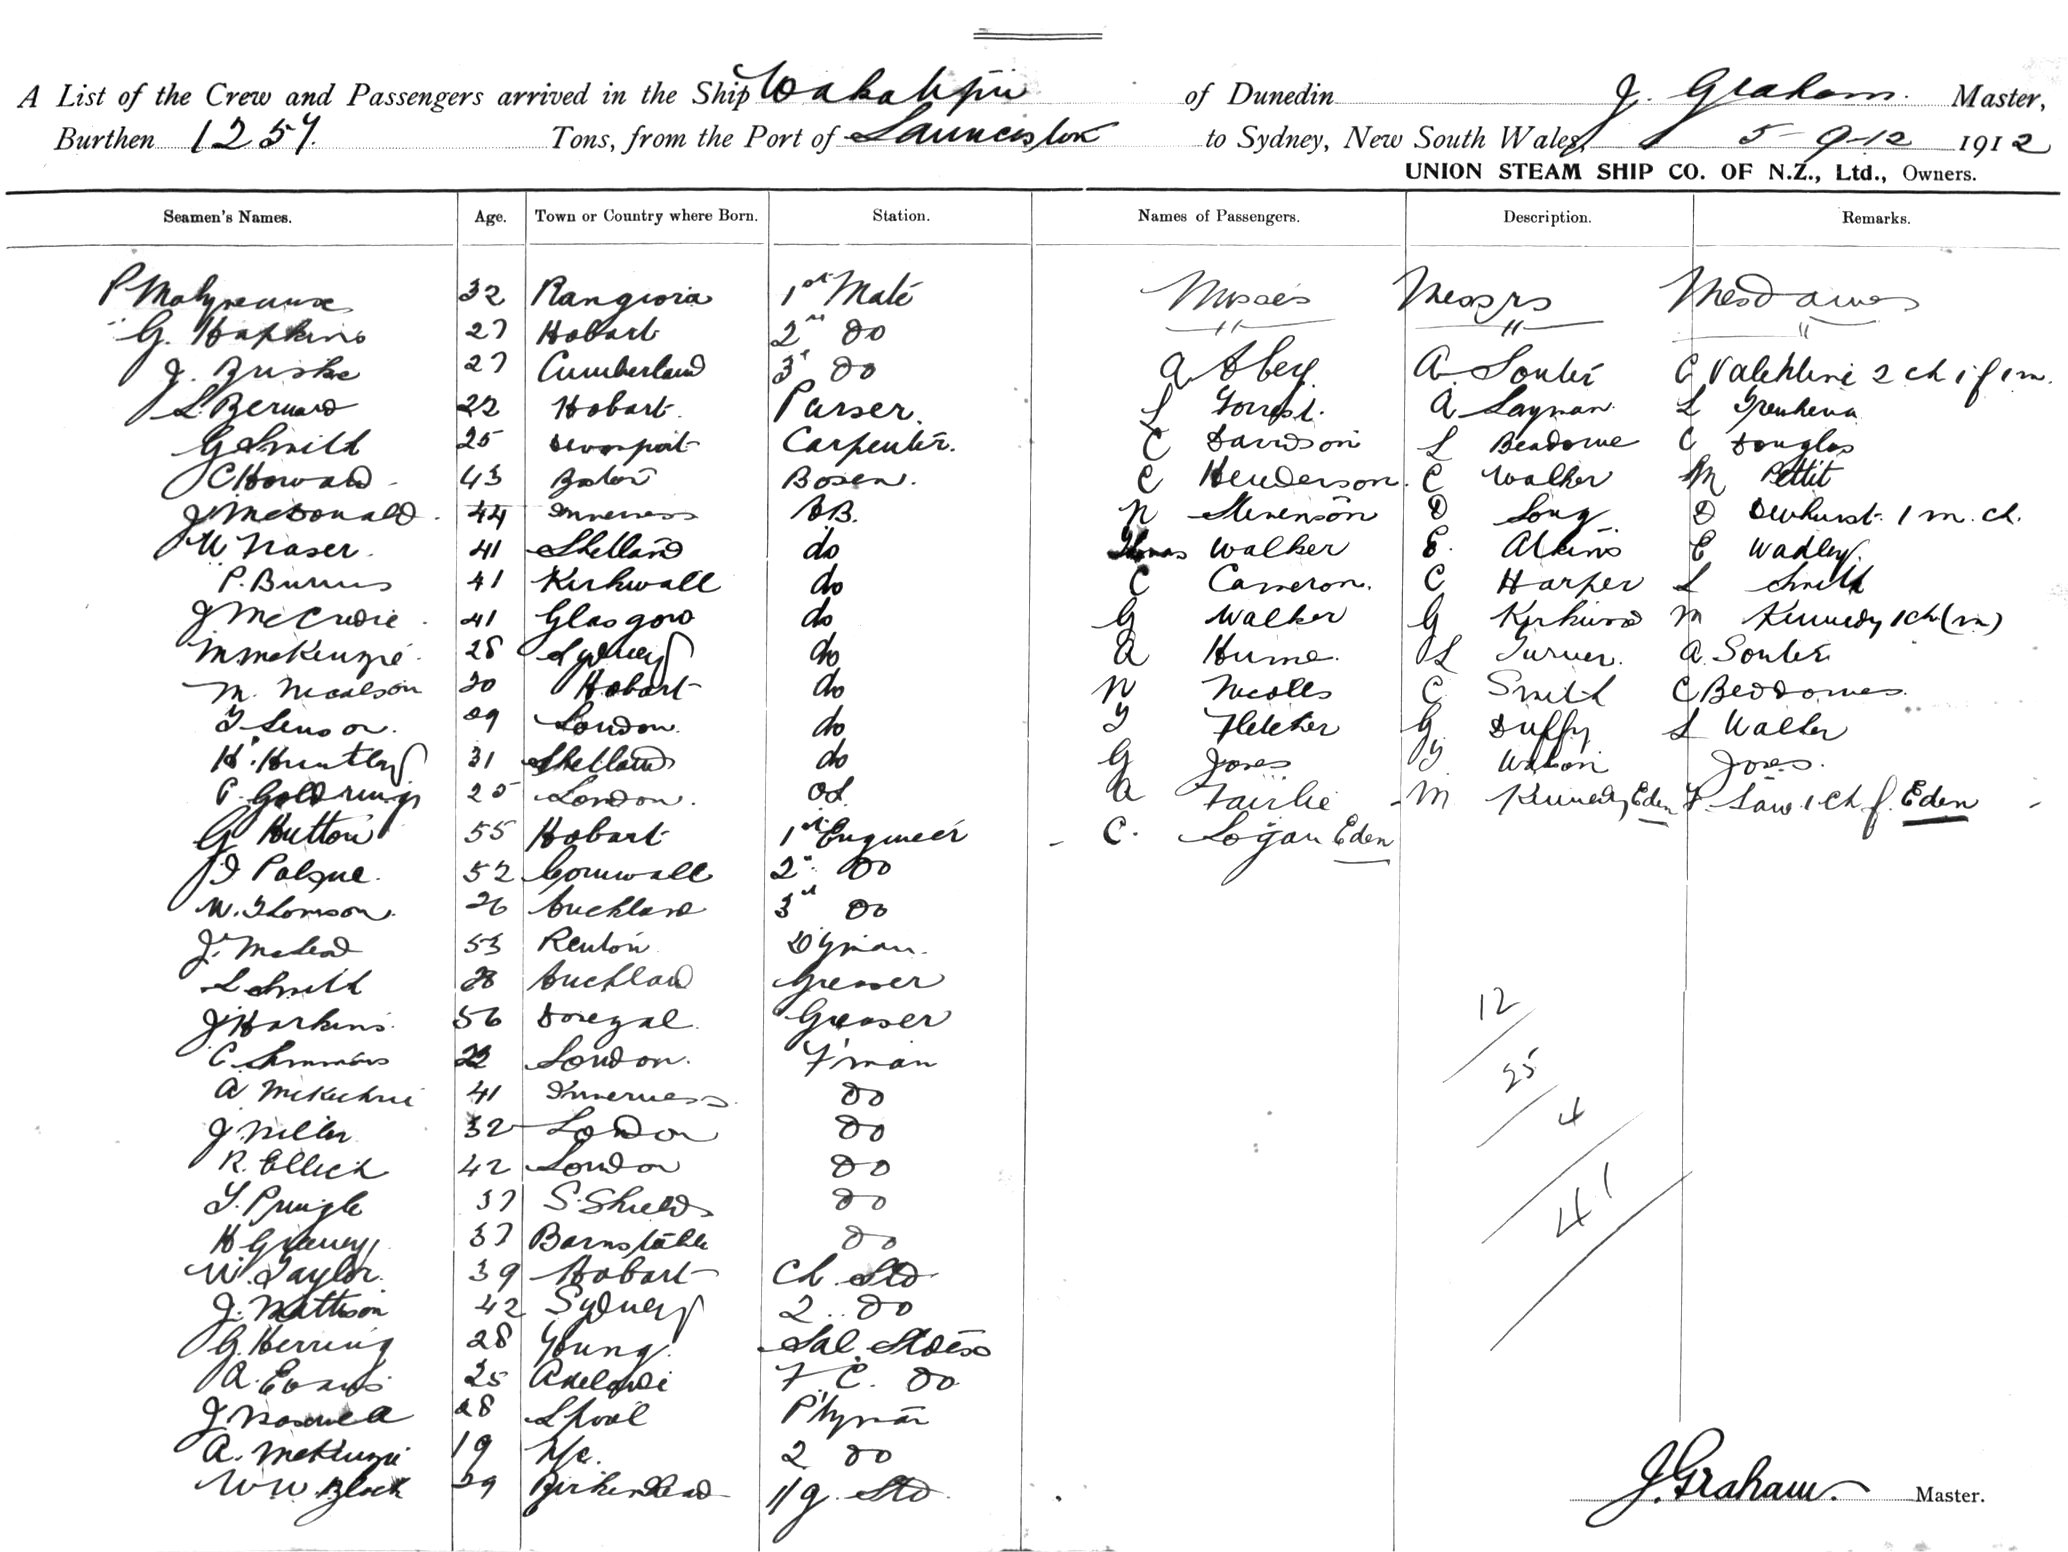 A List of the Crew and Passengers arrived in the Ship Wakatipu of Dunedin J. Graham Master,
Burthen 1257 Tons, from the Port of Launceston to Sydney, New South Wales, 5-9-12 1912
UNION STEAM SHIP CO. OF N.Z., Ltd., Owners.
Seamen's Names. Age. Town or Country where Born. Station. Names of Passengers. Description. Remarks.
P Molyneaux 32 Rangiora 1st Mate Misses Messrs Mesdames
G. Hopkins 27 Hobart 2nd do " " "
J. 27 Cumberland 3rd do A Abey A. Souter C Valentine 2 ch 1 f 1 m.
L. Bernard 22 Hobart Purser. L Forrest. A Layman L
G Smith 25 Devonport Carpenter. C Davidson L Beddome C Douglas
C Howard 43 Boston Bosen. C Henderson. C Walker M Pettit
J McDonald 44 Inverness AB. N Stevenson D Long D Dewhurst 1 m. ch.
W Fraser. 41 Shetland do Thomas Walker E. Atkins E Wadley
P. Burns 41 Kirkwall do C Cameron. C Harper L Smith
J McCrudie 41 Glasgow do G Walker G Kirkwood M Kennedy 1 ch (m)
M McKenzie 28 Sydney do A Hume L Turner. A. Souter
M. Nicolson 20 Hobart do N Nicolls C Smith C Beddomes
T Sensor. 29 London. do T Fletcher G Duffy L Walker
H. Huntley 31 Shetland do G Jones Watson Jones.
C. Goldring 25 London. OS. A Fairlie M Kennedy Eden F Law 1 ch f. Eden
G Hutton 55 Hobart 1st Engineer C. Logan Eden
J 52 Cornwall 2nd do
W. Thomson. 26 Auckland 3rd do
J. McLeod 53 Renton D'yman.
L Smith 28 Auckland Greaser
J Harkins 56 Donegal. Greaser
12
C. Simmons 22 London. F'man
25
A McKechnie 41 Inverness do
J Miller 32 London do
4
R. Ellich 42 London do
T. Pringle 37 S. Shields do
41
H 37 Barnstable do
W. Taylor. 39 Hobart Ch. Std
J. Mattison 42 Sydney 2 do
G. Herring 28 Young. Sal. Stdess
A. Evans 25 Adelaide F. C. do
J 28 L'pool P'tyman
A. McKenzie 19 N/c. 2 do
W W. Block 29 Birkenhead F/g. Std
J. Graham. Master.